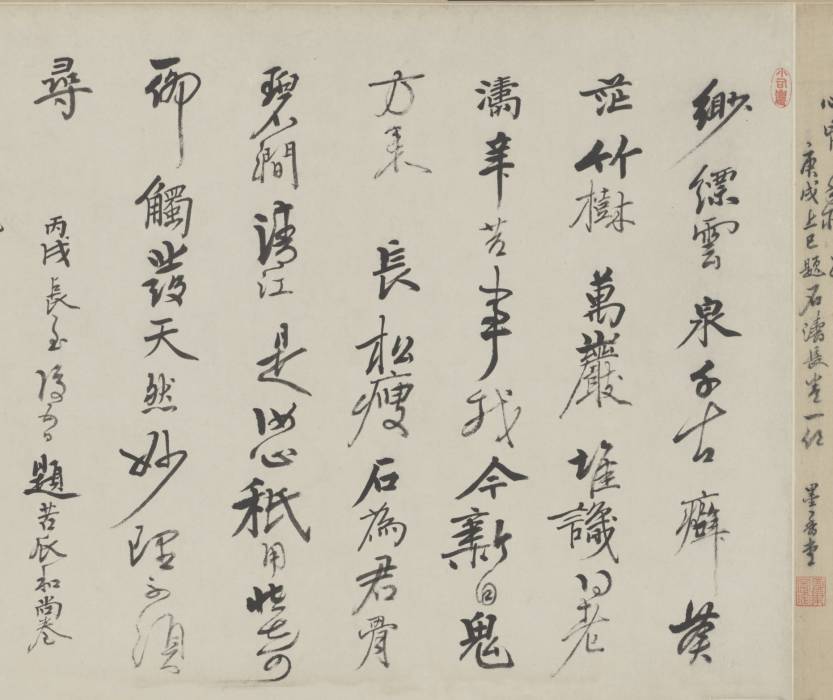 庚戌上巳題石濤長卷
緲縹雲泉千古癖
茫竹樹萬巖堆識得老
濤辛苦事我今新自鬼
方來 長松瘦石為君骨
碧澗清江是汝心秪用
觸發天然妙理不須
尋 丙戌長至後 日題苦瓜和尚卷